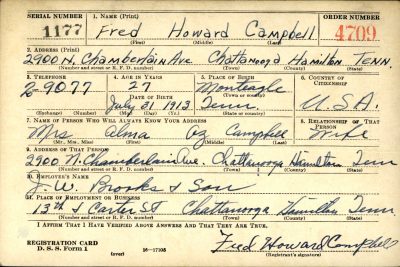 SERIAL NUMBER 1. NAME (Print) ORDER NUMBER
1177 Fred Howard Campbell 4709
(First) (Middle) (Last)
2. ADDRESS (Print)
2900 N. Chamberlain Ave. Chattanooga Hamilton Tenn.
(Number and street or R. F. D. number) (Town) (County) (State)
3. TELEPHONE 4. AGE IN YEARS 5. PLACE OF BIRTH 6. COUNTRY OF CITIZENSHIP
2-9077 27 Monteagle
DATE OF BIRTH (Town or county)
July 31 1913 Tenn. U.S.A.
(Exchange) (Number) (Mo.) (Day) (Yr.) (State or country)
7. NAME OF PERSON WHO WILL ALWAYS KNOW YOUR ADDRESS 8. RELATIONSHIP OF THAT PERSON
Mrs Alma Oz Campbell Wife
(Mr., Mrs., Miss) (First) (Middle) (Last)
9. ADDRESS OF THAT PERSON
2900 N. Chamberlain Ave. Chattanooga Hamilton Tenn
(Number and street or R. F. D. number) (Town) (County) (State)
10. EMPLOYER'S NAME
J. W. Brooks & Son
11. PLACE OF EMPLOYMENT OR BUSINESS
13th & Carter St Chattanooga Hamilton Tenn
(Number and street or R. F. D. number) (Town) (County) (State)
I AFFIRM THAT I HAVE VERIFIED ABOVE ANSWERS AND THAT THEY ARE TRUE.
REGISTRATION CARD
D. S. S. Form 1 (over) 16-17105 Fred Howard Campbell
(Registrant's signature)